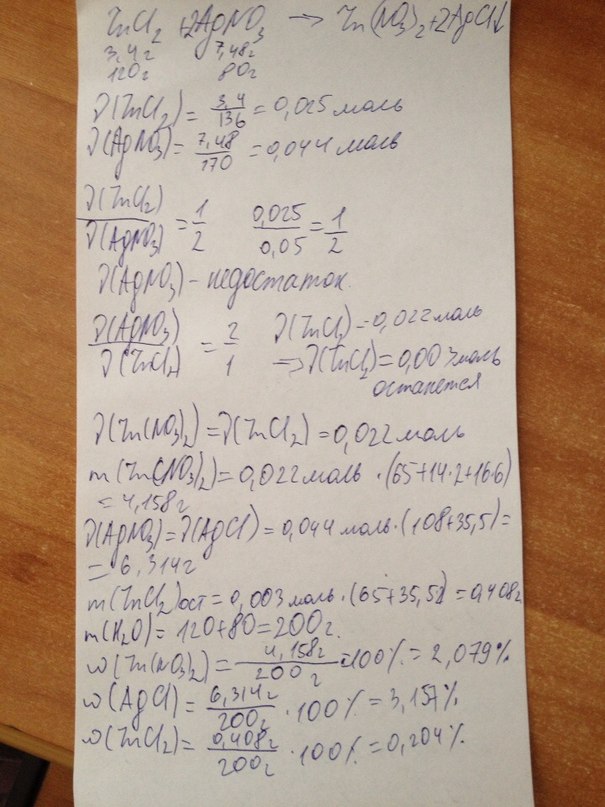 ZnCl₂ + 2AgNO₃ → Zn(NO₃)₂ + 2AgCl↓
3,4г 7,48г
120г 80г
ν(ZnCl₂) = 3,4/136 = 0,025 моль
ν(AgNO₃) = 7,48/170 = 0,044 моль
ν(ZnCl₂)/ν(AgNO₃) = 1/2 0,025/0,05 = 1/2
ν(AgNO₃) – недостаток.
ν(AgNO₃)/ν(ZnCl₂) = 2/1 ν(ZnCl₂) = 0,022 моль
⇒ ν(ZnCl₂) = 0,003 моль
останется
ν(Zn(NO₃)₂) = ν(ZnCl₂) = 0,022 моль
m(Zn(NO₃)₂) = 0,022 моль · (65+14·2+16·6)
= 4,158г
ν(AgNO₃) = ν(AgCl) = 0,044 моль · (108+35,5) =
= 6,314г
m(ZnCl₂)ост = 0,003 моль · (65+35,5·2) = 0,408г
m(H₂O) = 120+80 = 200г.
ω(Zn(NO₃)₂) = 4,158г/200г · 100% = 2,079%
ω(AgCl) = 6,314г/200г · 100% = 3,157%
ω(ZnCl₂) = 0,408г/200г · 100% = 0,204%